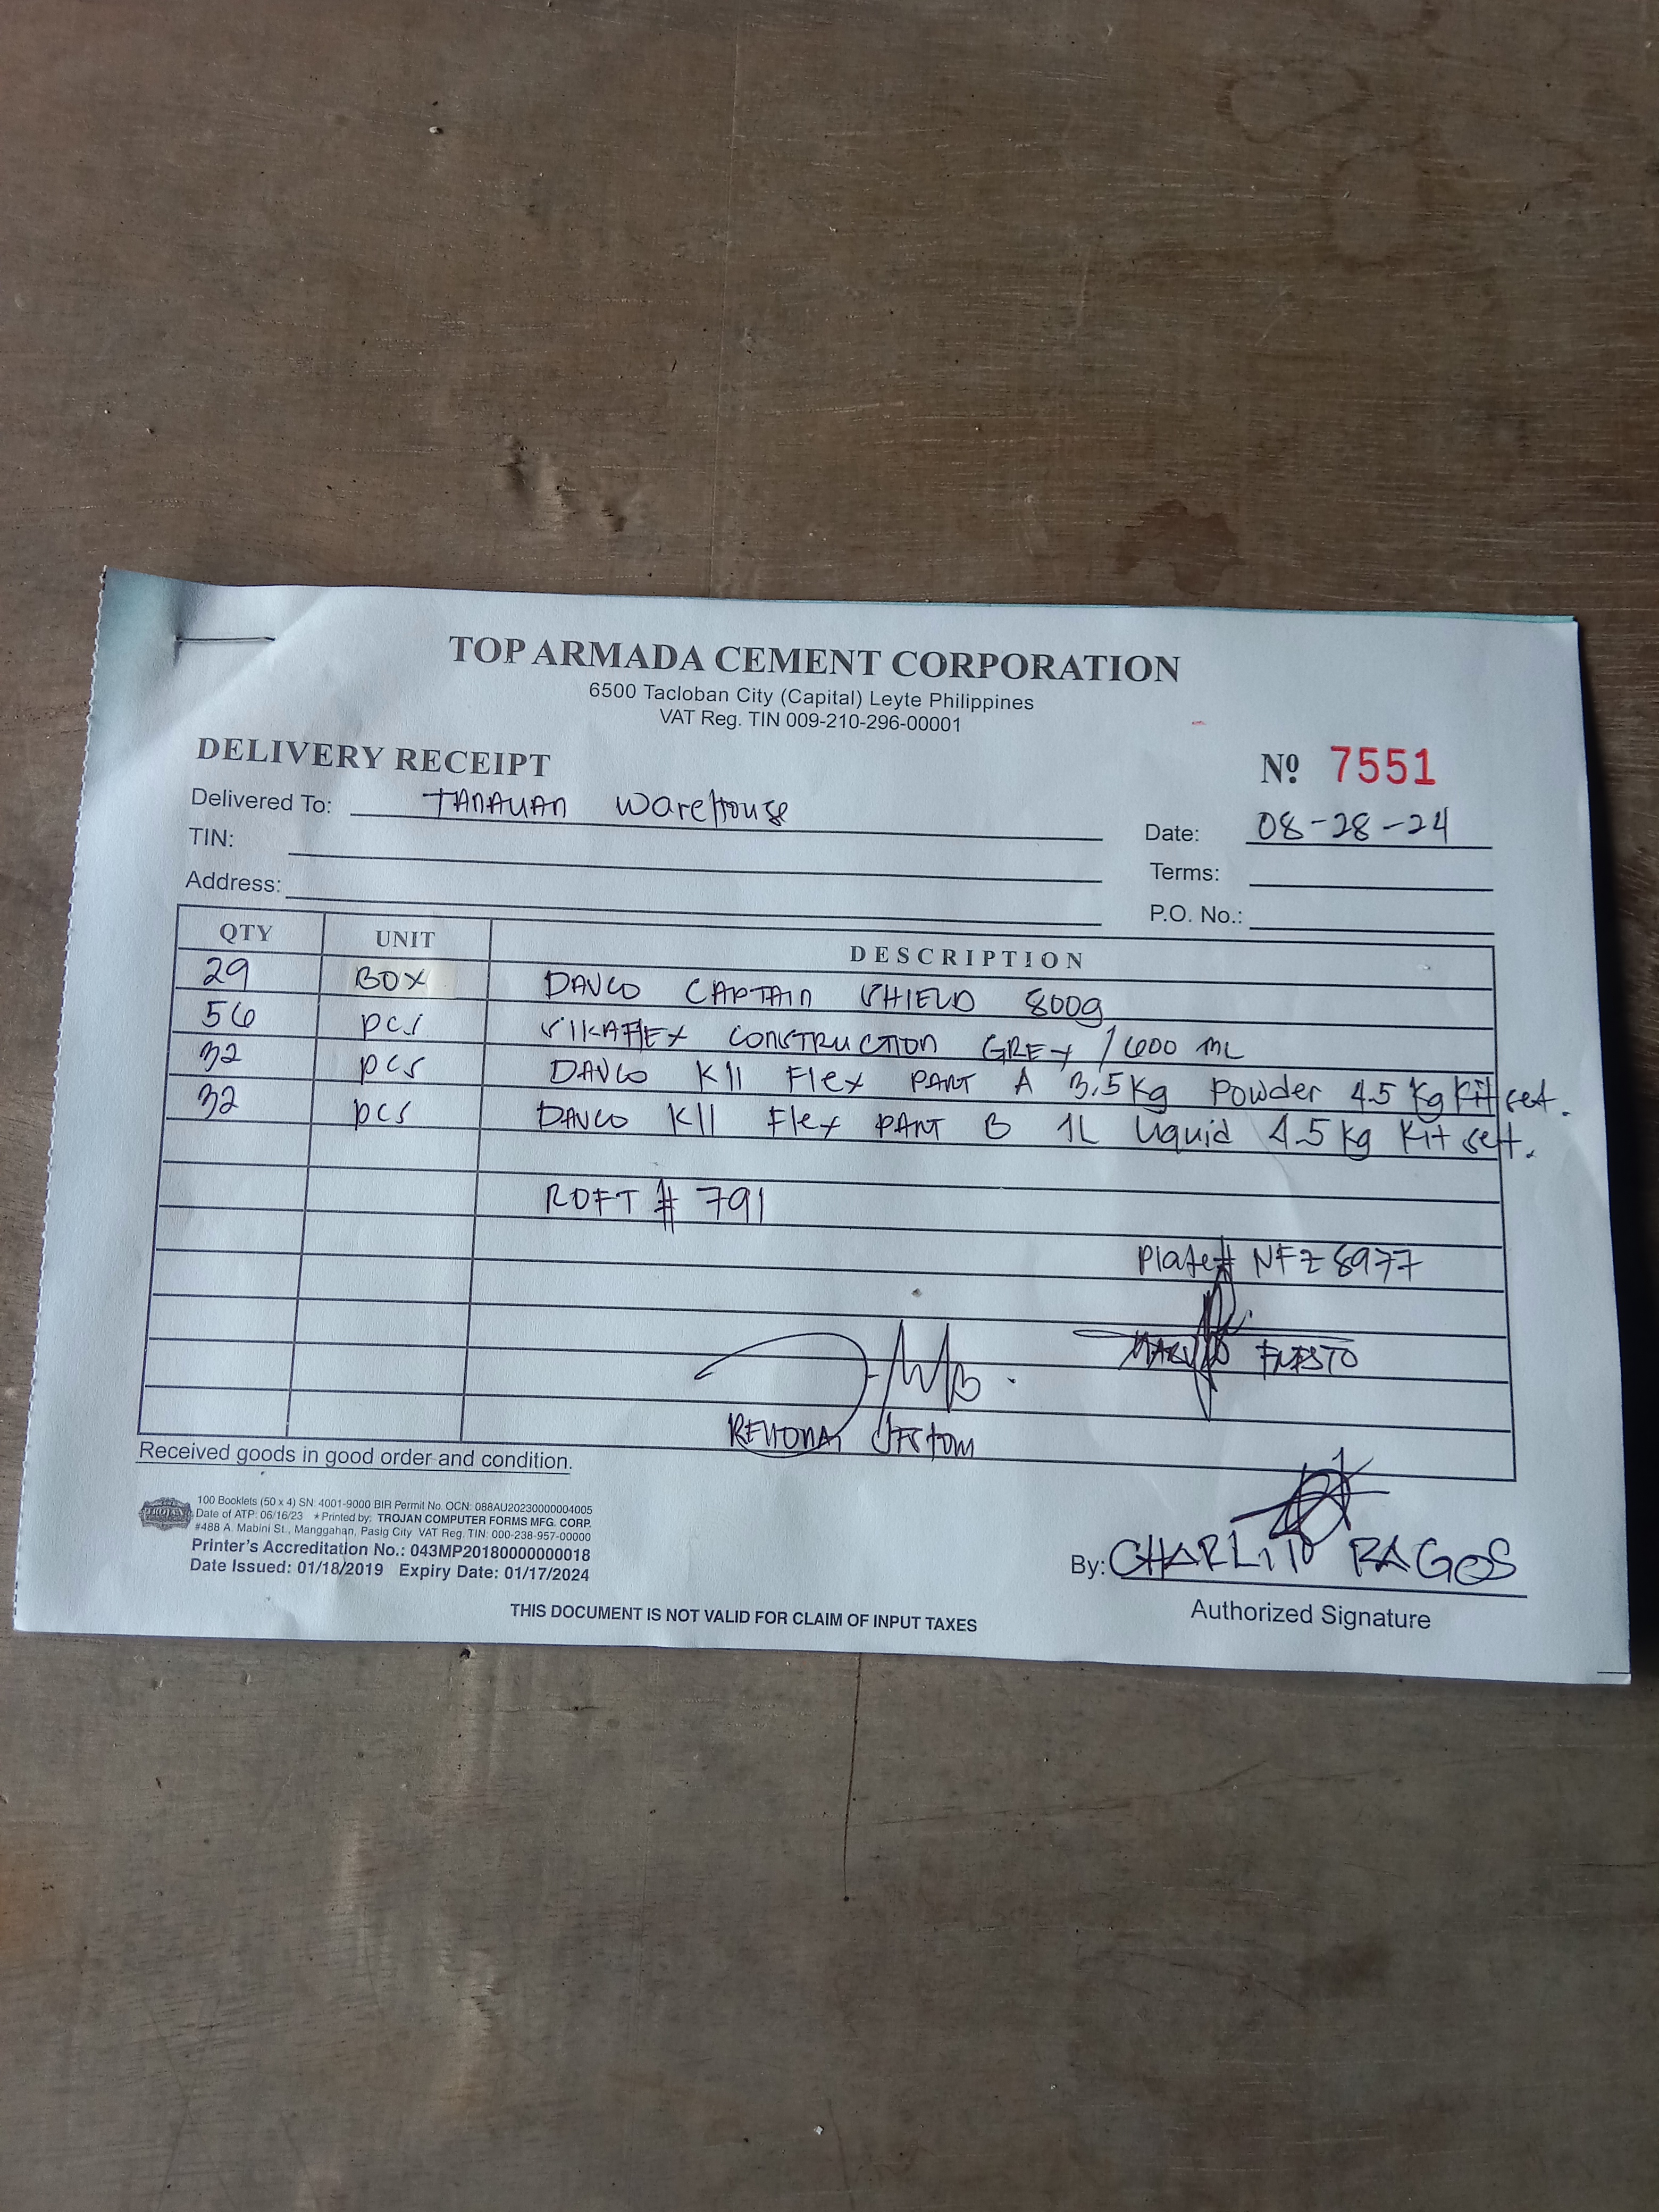 TOP ARMADA CEMENT CORPORATION
6500 Tacloban City (Capital) Leyte Philippines
VAT Reg. TIN 009-210-296-00001
DELIVERY RECEIPT
Nº 7551
Delivered To: TANAUAN WareHouse
Date: 08-28-24
TIN:
Terms:
Address:
P.O. No.:
QTY UNIT DESCRIPTION
29 BOX DAVCO CAPTAIN SHIELD 800g
56 pcs SIKAFLEX CONSTRUCTION GREY / 600 ML
32 pcs DAVCO K11 Flex PART A 3.5Kg Powder 4.5 Kg Kit set.
32 pcs DAVCO K11 Flex PART B 1L Liquid 4.5 Kg Kit set.
ROFT # 791
Plate# NFZ 8977
Received goods in good order and condition.
100 Booklets (50 x 4) SN: 4001-9000 BIR Permit No. OCN: 088AU20230000004005
Date of ATP: 06/16/23 ★Printed by: TROJAN COMPUTER FORMS MFG. CORP.
#488 A. Mabini St., Manggahan, Pasig City VAT Reg. TIN: 000-238-957-00000
Printer's Accreditation No.: 043MP20180000000018
Date Issued: 01/18/2019 Expiry Date: 01/17/2024
By: CHARLITO RAGOS
Authorized Signature
THIS DOCUMENT IS NOT VALID FOR CLAIM OF INPUT TAXES